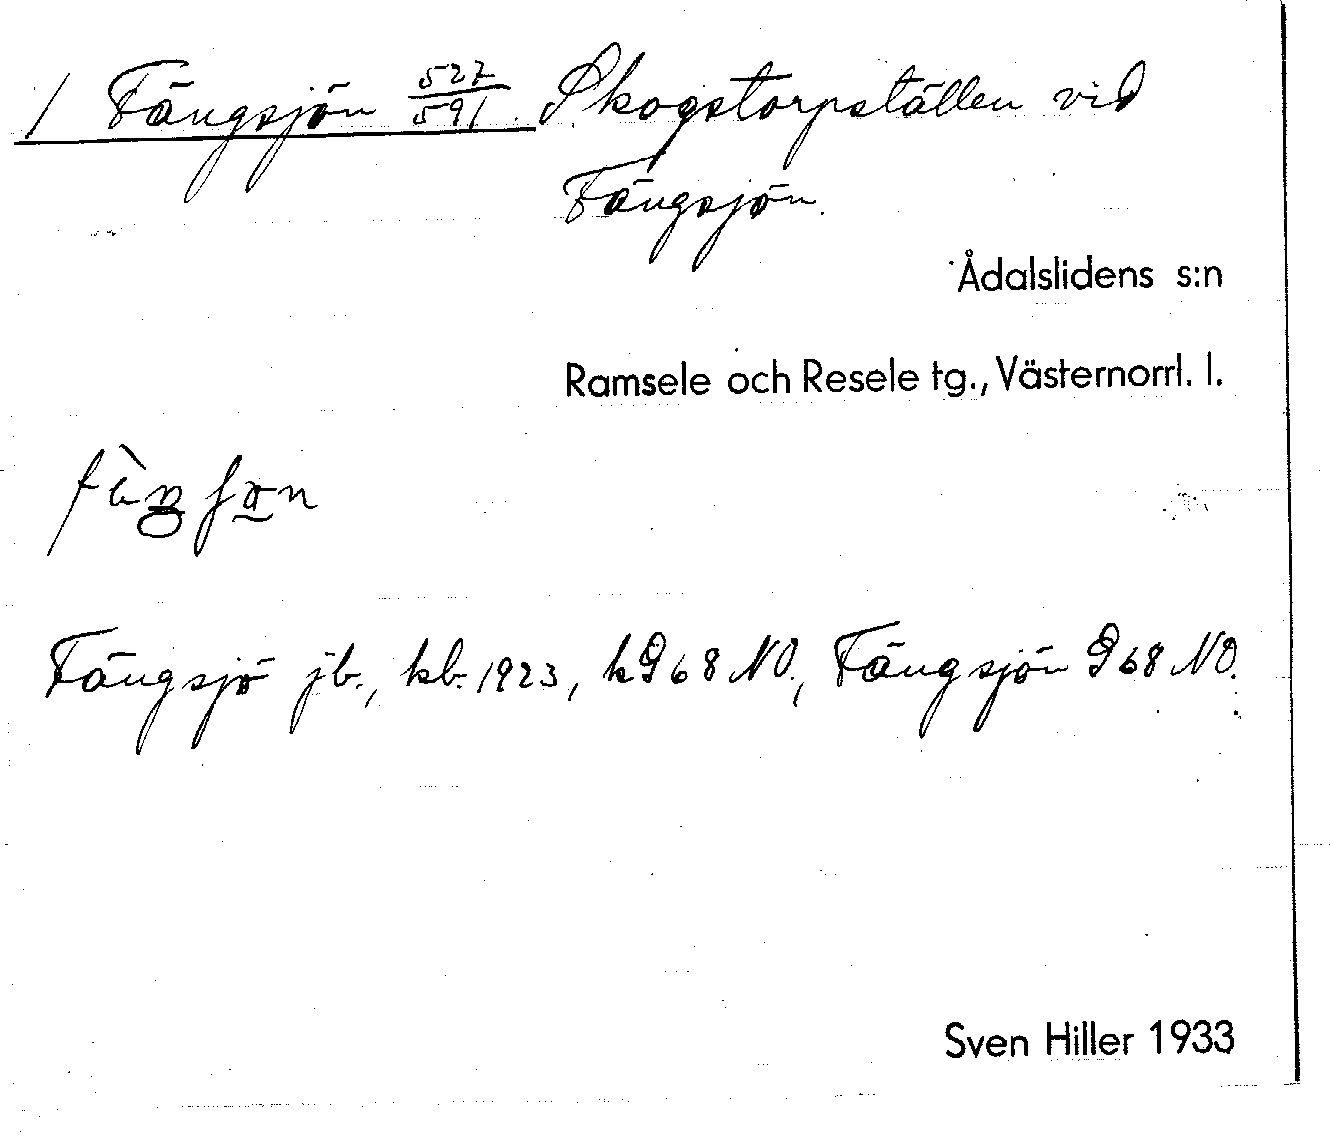 1 Fängsjön 527/591. Skogstorpställen vid
Fängsjön.
Ådalslidens s:n
Ramsele och Resele tg., Västernorrl. l.
Fängsjö jb., kb. 1923, kG 68 NO., Fängsjön G 68 NO.
Sven Hiller 1933